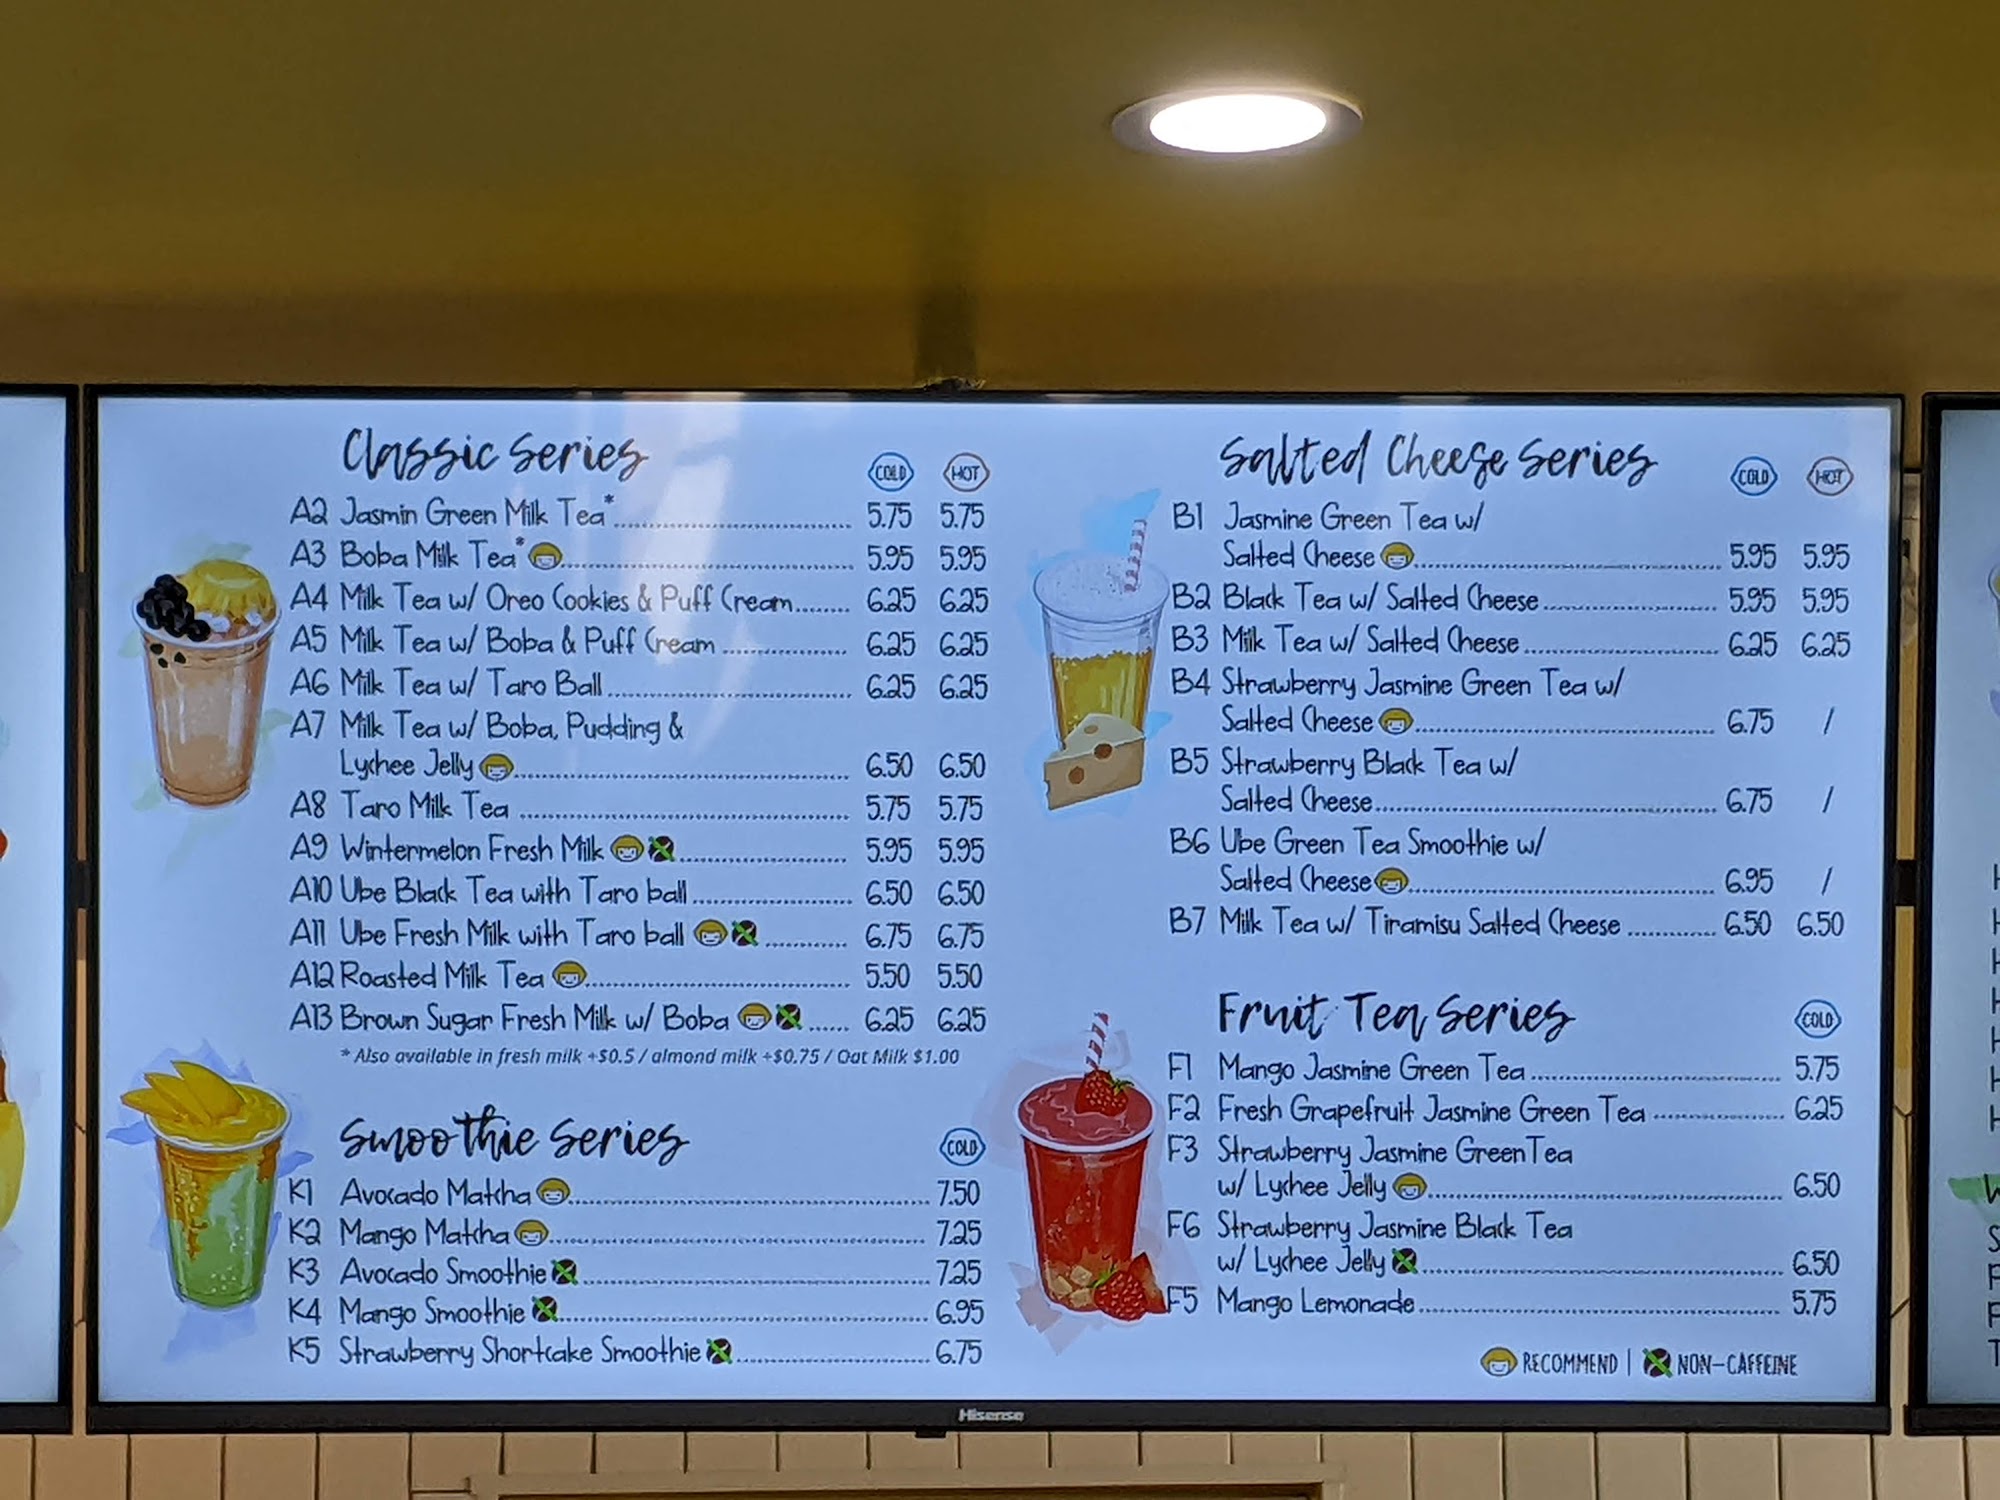 Classic Series COLD HOT
A2 Jasmin Green Milk Tea* 5.75 5.75
A3 Boba Milk Tea* 5.95 5.95
A4 Milk Tea w/ Oreo Cookies & Puff Cream 6.25 6.25
A5 Milk Tea w/ Boba & Puff Cream 6.25 6.25
A6 Milk Tea w/ Taro Ball 6.25 6.25
A7 Milk Tea w/ Boba, Pudding &
Lychee Jelly 6.50 6.50
A8 Taro Milk Tea 5.75 5.75
A9 Wintermelon Fresh Milk 5.95 5.95
A10 Ube Black Tea with Taro ball 6.50 6.50
A11 Ube Fresh Milk with Taro ball 6.75 6.75
A12 Roasted Milk Tea 5.50 5.50
A13 Brown Sugar Fresh Milk w/ Boba 6.25 6.25
* Also available in fresh milk +$0.5 / almond milk +$0.75 / Oat Milk $1.00
Smoothie Series COLD
K1 Avocado Matcha 7.50
K2 Mango Matcha 7.25
K3 Avocado Smoothie 7.25
K4 Mango Smoothie 6.95
K5 Strawberry Shortcake Smoothie 6.75
Salted Cheese Series COLD HOT
B1 Jasmine Green Tea w/
Salted Cheese 5.95 5.95
B2 Black Tea w/ Salted Cheese 5.95 5.95
B3 Milk Tea w/ Salted Cheese 6.25 6.25
B4 Strawberry Jasmine Green Tea w/
Salted Cheese 6.75 /
B5 Strawberry Black Tea w/
Salted Cheese 6.75 /
B6 Ube Green Tea Smoothie w/
Salted Cheese 6.95 /
B7 Milk Tea w/ Tiramisu Salted Cheese 6.50 6.50
Fruit Tea Series COLD
F1 Mango Jasmine Green Tea 5.75
F2 Fresh Grapefruit Jasmine Green Tea 6.25
F3 Strawberry Jasmine GreenTea
w/ Lychee Jelly 6.50
F6 Strawberry Jasmine Black Tea
w/ Lychee Jelly 6.50
F5 Mango Lemonade 5.75
RECOMMEND | NON-CAFFEINE
Hisense